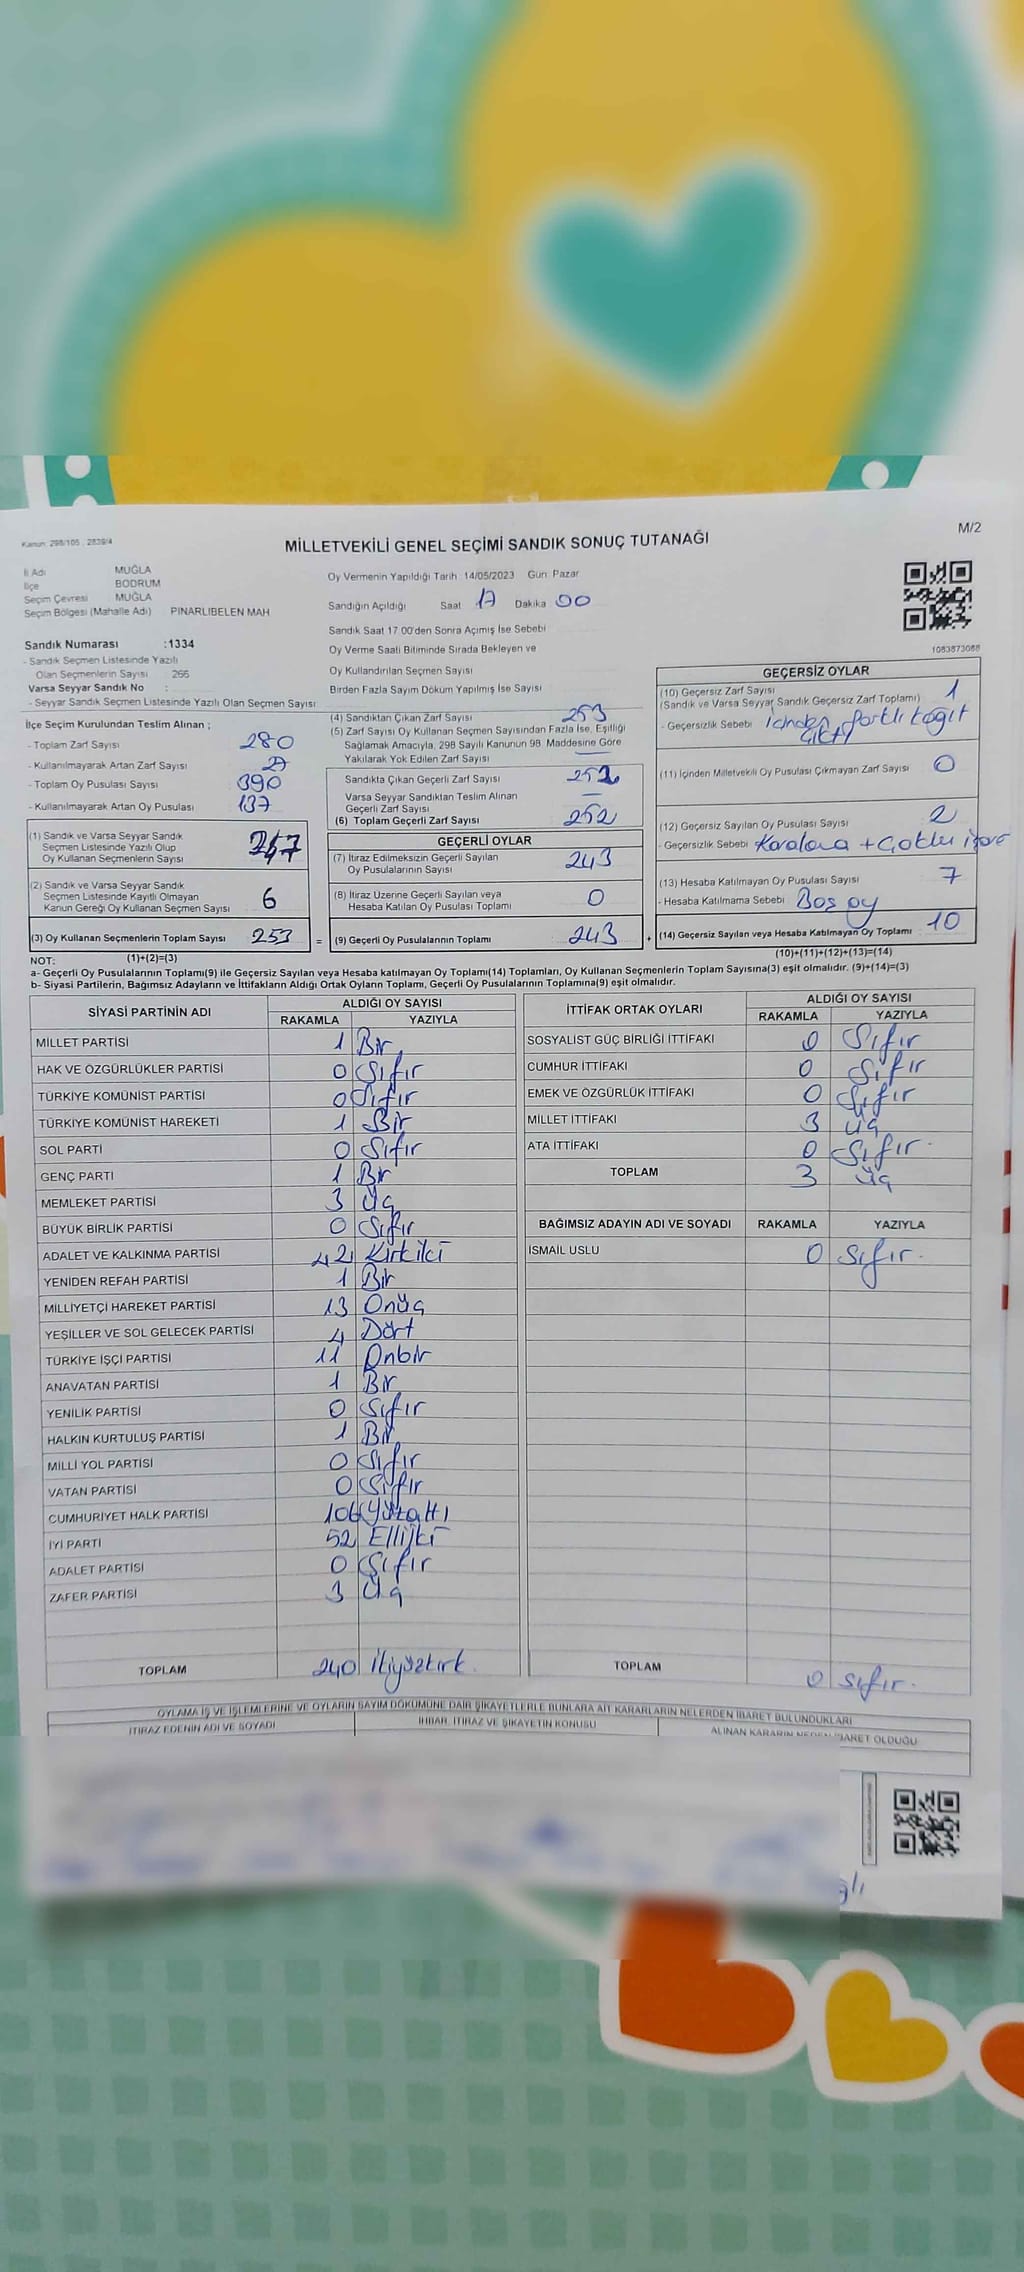 Kanun: 298/105 , 2839/4
MİLLETVEKİLİ GENEL SEÇİMİ SANDIK SONUÇ TUTANAĞI
M/2
İl Adı MUĞLA
İlçe BODRUM
Seçim Çevresi MUĞLA
Seçim Bölgesi (Mahalle Adı) PINARLIBELEN MAH
Oy Vermenin Yapıldığı Tarih 14/05/2023 Gün: Pazar
Sandığın Açıldığı Saat 17 Dakika 00
Sandık Saat 17.00'den Sonra Açılmış İse Sebebi
Oy Verme Saati Bitiminde Sırada Bekleyen ve
Oy Kullandırılan Seçmen Sayısı
Birden Fazla Sayım Döküm Yapılmış İse Sayısı
1083873088
Sandık Numarası :1334
- Sandık Seçmen Listesinde Yazılı
Olan Seçmenlerin Sayısı 266
Varsa Seyyar Sandık No :
- Seyyar Sandık Seçmen Listesinde Yazılı Olan Seçmen Sayısı
İlçe Seçim Kurulundan Teslim Alınan ;
- Toplam Zarf Sayısı 280
- Kullanılmayarak Artan Zarf Sayısı 27
- Toplam Oy Pusulası Sayısı 390
- Kullanılmayarak Artan Oy Pusulası 137
(1) Sandık ve Varsa Seyyar Sandık
Seçmen Listesinde Yazılı Olup
Oy Kullanan Seçmenlerin Sayısı 247
(2) Sandık ve Varsa Seyyar Sandık
Seçmen Listesinde Kayıtlı Olmayan
Kanun Gereği Oy Kullanan Seçmen Sayısı 6
(3) Oy Kullanan Seçmenlerin Toplam Sayısı 253 =
(4) Sandıktan Çıkan Zarf Sayısı 253
(5) Zarf Sayısı Oy Kullanan Seçmen Sayısından Fazla İse, Eşitliği
Sağlamak Amacıyla, 298 Sayılı Kanunun 98. Maddesine Göre
Yakılarak Yok Edilen Zarf Sayısı —
Sandıkta Çıkan Geçerli Zarf Sayısı 252
Varsa Seyyar Sandıktan Teslim Alınan
Geçerli Zarf Sayısı —
(6) Toplam Geçerli Zarf Sayısı 252
GEÇERLİ OYLAR
(7) İtiraz Edilmeksizin Geçerli Sayılan
Oy Pusulalarının Sayısı 243
(8) İtiraz Üzerine Geçerli Sayılan veya
Hesaba Katılan Oy Pusulası Toplamı 0
(9) Geçerli Oy Pusulalarının Toplamı 243 +
GEÇERSİZ OYLAR
(10) Geçersiz Zarf Sayısı 1
(Sandık ve Varsa Seyyar Sandık Geçersiz Zarf Toplamı)
- Geçersizlik Sebebi İçinden farklı kağıt
çıktı
(11) İçinden Milletvekili Oy Pusulası Çıkmayan Zarf Sayısı 0
(12) Geçersiz Sayılan Oy Pusulası Sayısı 2
- Geçersizlik Sebebi Karalama + Çoklu
(13) Hesaba Katılmayan Oy Pusulası Sayısı 7
- Hesaba Katılmama Sebebi Boş oy
(14) Geçersiz Sayılan veya Hesaba Katılmayan Oy Toplamı 10
NOT: (1)+(2)=(3)
(10)+(11)+(12)+(13)=(14)
a- Geçerli Oy Pusulalarının Toplamı(9) ile Geçersiz Sayılan veya Hesaba katılmayan Oy Toplamı(14) Toplamları, Oy Kullanan Seçmenlerin Toplam Sayısına(3) eşit olmalıdır. (9)+(14)=(3)
b- Siyasi Partilerin, Bağımsız Adayların ve İttifakların Aldığı Ortak Oyların Toplamı, Geçerli Oy Pusulalarının Toplamına(9) eşit olmalıdır.
SİYASİ PARTİNİN ADI ALDIĞI OY SAYISI
RAKAMLA YAZIYLA
MİLLET PARTİSİ 1 Bir
HAK VE ÖZGÜRLÜKLER PARTİSİ 0 Sıfır
TÜRKİYE KOMÜNİST PARTİSİ 0 Sıfır
TÜRKİYE KOMÜNİST HAREKETİ 1 Bir
SOL PARTİ 0 Sıfır
GENÇ PARTİ 1 Bir
MEMLEKET PARTİSİ 3 Üç
BÜYÜK BİRLİK PARTİSİ 0 Sıfır
ADALET VE KALKINMA PARTİSİ 42 Kırkiki
YENİDEN REFAH PARTİSİ 1 Bir
MİLLİYETÇİ HAREKET PARTİSİ 13 Onüç
YEŞİLLER VE SOL GELECEK PARTİSİ 4 Dört
TÜRKİYE İŞÇİ PARTİSİ 11 Onbir
ANAVATAN PARTİSİ 1 Bir
YENİLİK PARTİSİ 0 Sıfır
HALKIN KURTULUŞ PARTİSİ 1 Bir
MİLLİ YOL PARTİSİ 0 Sıfır
VATAN PARTİSİ 0 Sıfır
CUMHURİYET HALK PARTİSİ 106 Yüzaltı
İYİ PARTİ 52 Elliiki
ADALET PARTİSİ 0 Sıfır
ZAFER PARTİSİ 3 Üç
TOPLAM 240 İkiyüzkırk
İTTİFAK ORTAK OYLARI ALDIĞI OY SAYISI
RAKAMLA YAZIYLA
SOSYALİST GÜÇ BİRLİĞİ İTTİFAKI 0 Sıfır
CUMHUR İTTİFAKI 0 Sıfır
EMEK VE ÖZGÜRLÜK İTTİFAKI 0 Sıfır
MİLLET İTTİFAKI 3 Üç
ATA İTTİFAKI 0 Sıfır.
TOPLAM 3 Üç
BAĞIMSIZ ADAYIN ADI VE SOYADI RAKAMLA YAZIYLA
İSMAİL USLU 0 Sıfır.
TOPLAM 0 sıfır.
OYLAMA İŞ VE İŞLEMLERİNE VE OYLARIN SAYIM DÖKÜMÜNE DAİR ŞİKAYETLERLE BUNLARA AİT KARARLARIN NELERDEN İBARET BULUNDUKLARI
İTİRAZ EDENİN ADI VE SOYADI İHBAR, İTİRAZ VE ŞİKAYETİN KONUSU ALINAN KARARIN NEDEN İBARET OLDUĞU